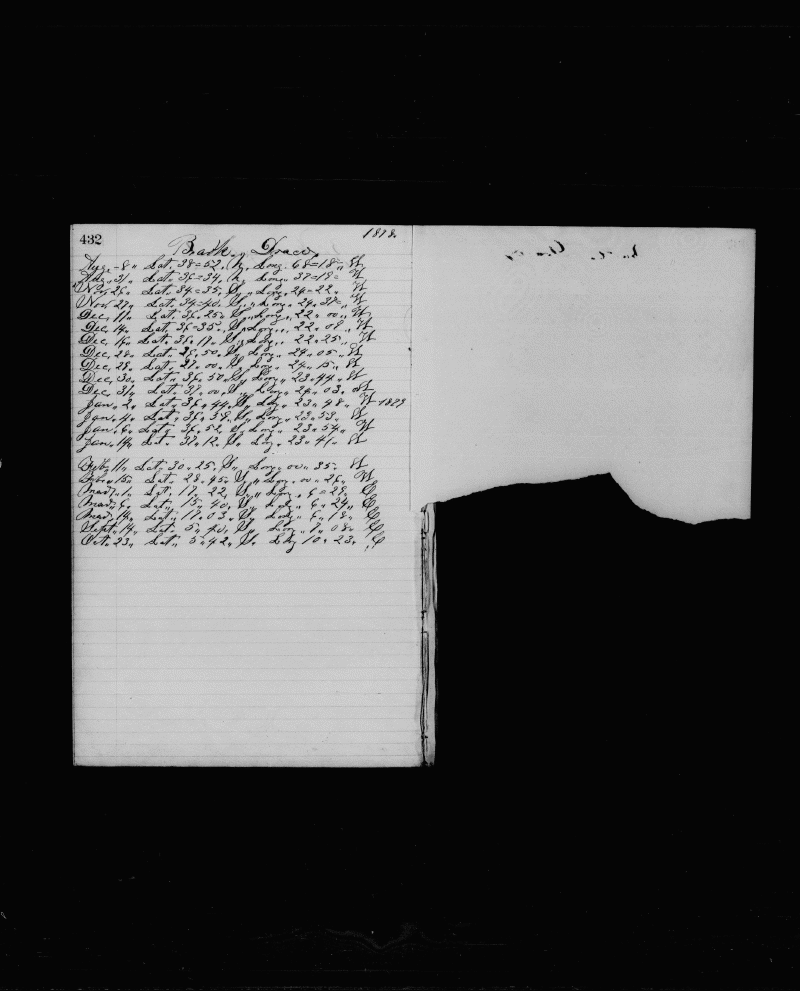 432
1878.
Bark " Draco,
Aug. 8 " Lat. 38=52, N, Long. 68=18 " W
Aug. 31 " Lat. 36=34, N, Long. 37=18= W
Nov. 26 " Lat. 34=35, S, Long. 24=22 " W
Nov. 27 " Lat. 34=40, S, Long. 24, 37= W
Dec. 11 " Lat. 36, 25, S, Long. 22, 00, W
Dec. 14, Lat. 36=35, S, Long. 22, 08, W
Dec. 16 " Lat. 36, 19, S, Long. 22, 25, W
Dec. 26 " Lat. 36, 50, S, Long. 24, 05, W
Dec. 28, Lat. 37, 00, S, Long. 24, 15, W
Dec. 30, Lat. 36, 50, S, Long. 23, 44, W
Dec. 31 " Lat. 37, 00, S, Long. 24, 03, W
Jan. 2, Lat. 36, 44, S, Long. 23, 48, W 1879
Jan. 4, Lat. 36, 58, S, Long. 23, 53, W
Jan. 6, Lat. 36, 52, S, Long. 23, 54, W
Jan. 14, Lat. 37, 12, S, Long. 23, 41, W
Feb. 11, Lat. 30, 25, S, Long. 00, 35, W
Feb. 15, Lat. 28, 45, S, Long. 00, 26, W
Mar. 1, Lat. 17, 22, S, Long. 6, 28, E
Mar. 6, Lat. 15, 40, S, Long. 6, 24, E
Mar. 14, Lat. 11, 03, S, Long. 6, 18, E
Sept. 14, Lat. 5, 40, S, Long. 9, 08, E
Oct. 23, Lat. 5, 42, S, Long. 10, 23, E